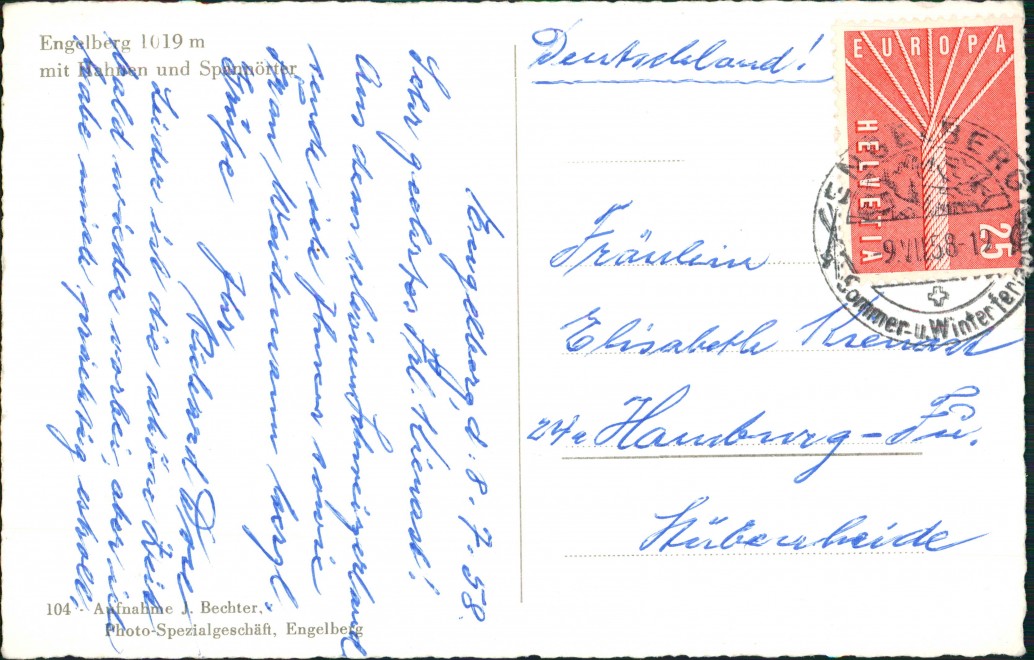 Engelberg 1019 m
mit Hahnen und Spannörter
Engelberg, d. 8. 7. 58.
Sehr geehrtes Frl. Kienast!
Aus dem schönen Schweizerland
sende ich Ihnen sowie
Frau Weidemann herzl.
Grüße
Ihr
Richard
Leider ist die schöne Zeit
bald wieder vorbei, aber ich
habe mich prächtig erholt.
104 - Aufnahme J. Bechter,
Photo-Spezialgeschäft, Engelberg
Deutschland!
EUROPA
HELVETIA
25
ENGELBERG
9.VII.58-12
Sommer- u. Winter
Fräulein
Elisabeth Kienast
24a Hamburg-Fu.
Stübeheide